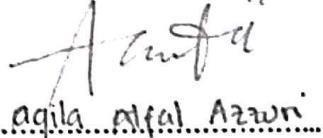 aqila Alfal Azzuri